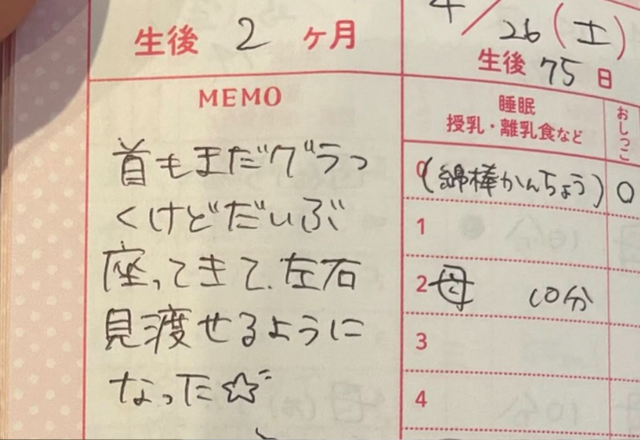 生後 2 ヶ月
MEMO
首もまだグラっ
くけどだいぶ
座ってきて、左右
見渡せるように
なった☆
4/26(土)
生後75日
睡眠
授乳・離乳食など
おしっこ
0 (綿棒かんちょう) ○
1
2 母 10分
3
4